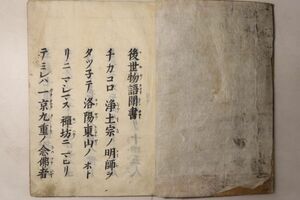 後世物語聞書
チカコロ浄土宗ノ明師ヲ
タツ子テ洛陽東山ノホト
リニマシマス禅坊ニマヒリ
テミレハ一京九重ノ念佛者